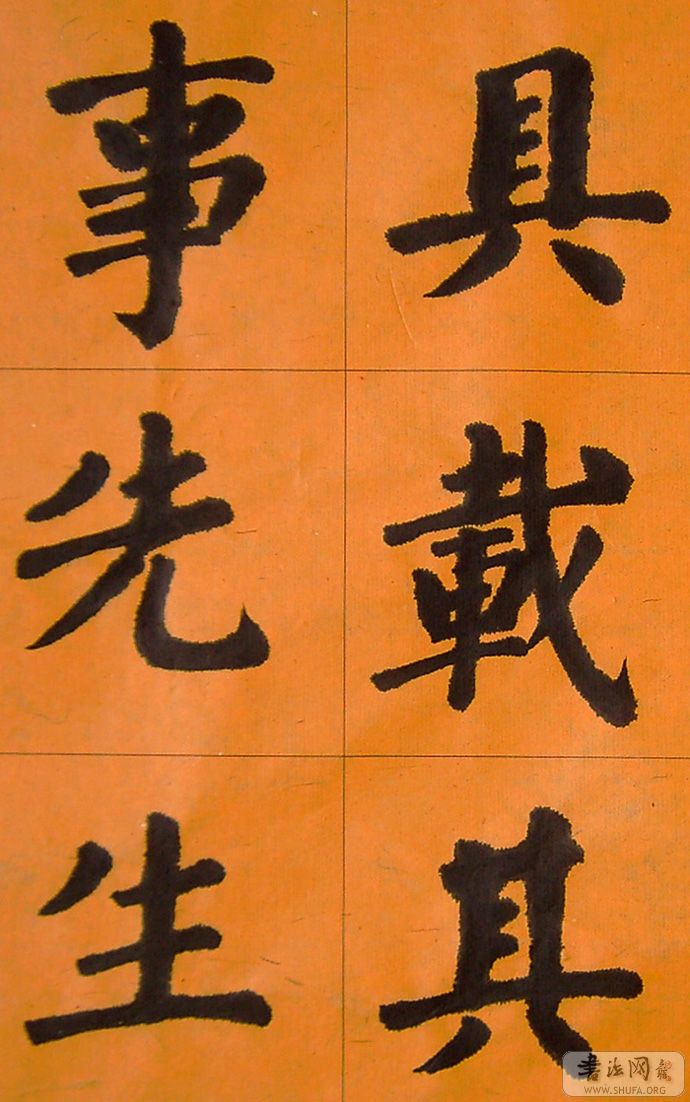 具載其
事先生
書法网
WWW.SHUFA.ORG